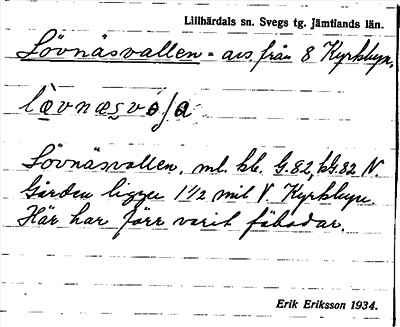 Lillhärdals sn. Svegs tg. jämtlands län.
Lövnäsvallen - avs. från 8 Kyrkbyn.
Lövnäsvallen, ml. kl. G.82, kG.82 N.
Gården ligger 1 1/2 mil V. Kyrkbyn.
Här har förr varit fäbodar.
Erik Eriksson 1934.